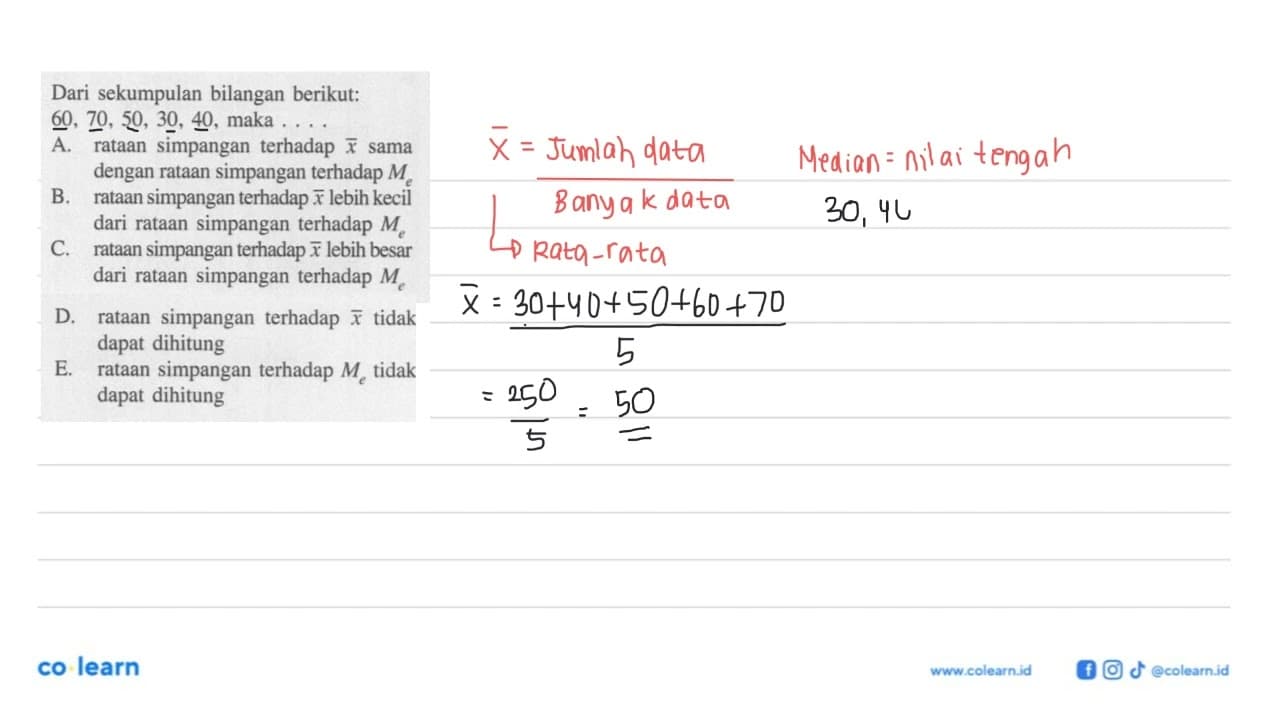 Dari sekumpulan bilangan berikut:
60, 70, 50, 30, 40, maka . . . .
A. rataan simpangan terhadap x̄ sama
dengan rataan simpangan terhadap Me
B. rataan simpangan terhadap x̄ lebih kecil
dari rataan simpangan terhadap Me
C. rataan simpangan terhadap x̄ lebih besar
dari rataan simpangan terhadap Me
D. rataan simpangan terhadap x̄ tidak
dapat dihitung
E. rataan simpangan terhadap Me tidak
dapat dihitung
x̄ = Jumlah data
Banyak data
Rata-rata
x̄ = 30+40+50+60+70
5
= 250
5
= 50
Median = nilai tengah
30, 4
co learn
www.colearn.id
@colearn.id